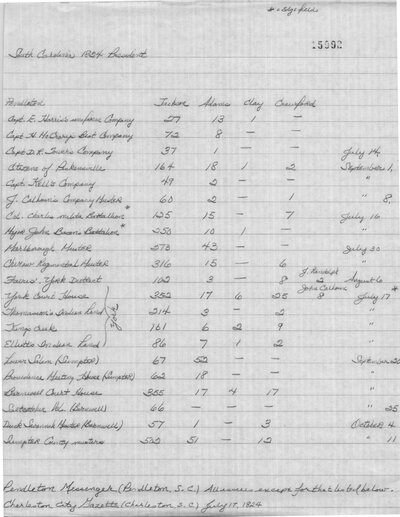 * = Edgefield
15992
South Carolina 1824 President
Pendleton Jackson Adams Clay Crawford
Capt. E. Harris's uniform Company 27 13 1 —
Capt. H. McCrary's Beat Company 72 8 — —
Capt D. R. Towers Company 37 1 — — July 14
Citizens of Pickensville 164 18 1 2 September 1
Capt. Kell's Company 49 2 — — "
J. Calhoun's Company Muster 60 2 — 1 " 8
Col. Charles Militia Battalion * 125 15 — 7 July 16
Major John Bacon's Battalion * 250 10 1 — "
Marlborough Muster 570 43 — — July 30
Cheraw Regimental Muster 316 15 — 6 "
Fairs', York District 102 3 — 8 J. Randolph 2 August 6
York Court House 352 17 6 25 John Calhoun 8 July 17 *
Thomason's Indian Land 214 3 — 2 "
York
King's Creek 161 6 2 9 "
Elliotts Indian Land 86 7 1 2 "
Lower Salem (Sumpter) 67 52 — — September 20
Providence Meeting House (Sumpter) 62 18 — — "
Barnwell Court House 355 17 4 17 "
(Barnwell) 66 — — — " 25
Duck Savannah Muster (Barnwell) 57 1 — 3 October 4
Sumpter County musters 532 51 — 12 " 11
Pendleton Messenger (Pendleton, S.C.) All issues except for that listed below.
Charleston City Gazette (Charleston S.C.) July 17, 1824